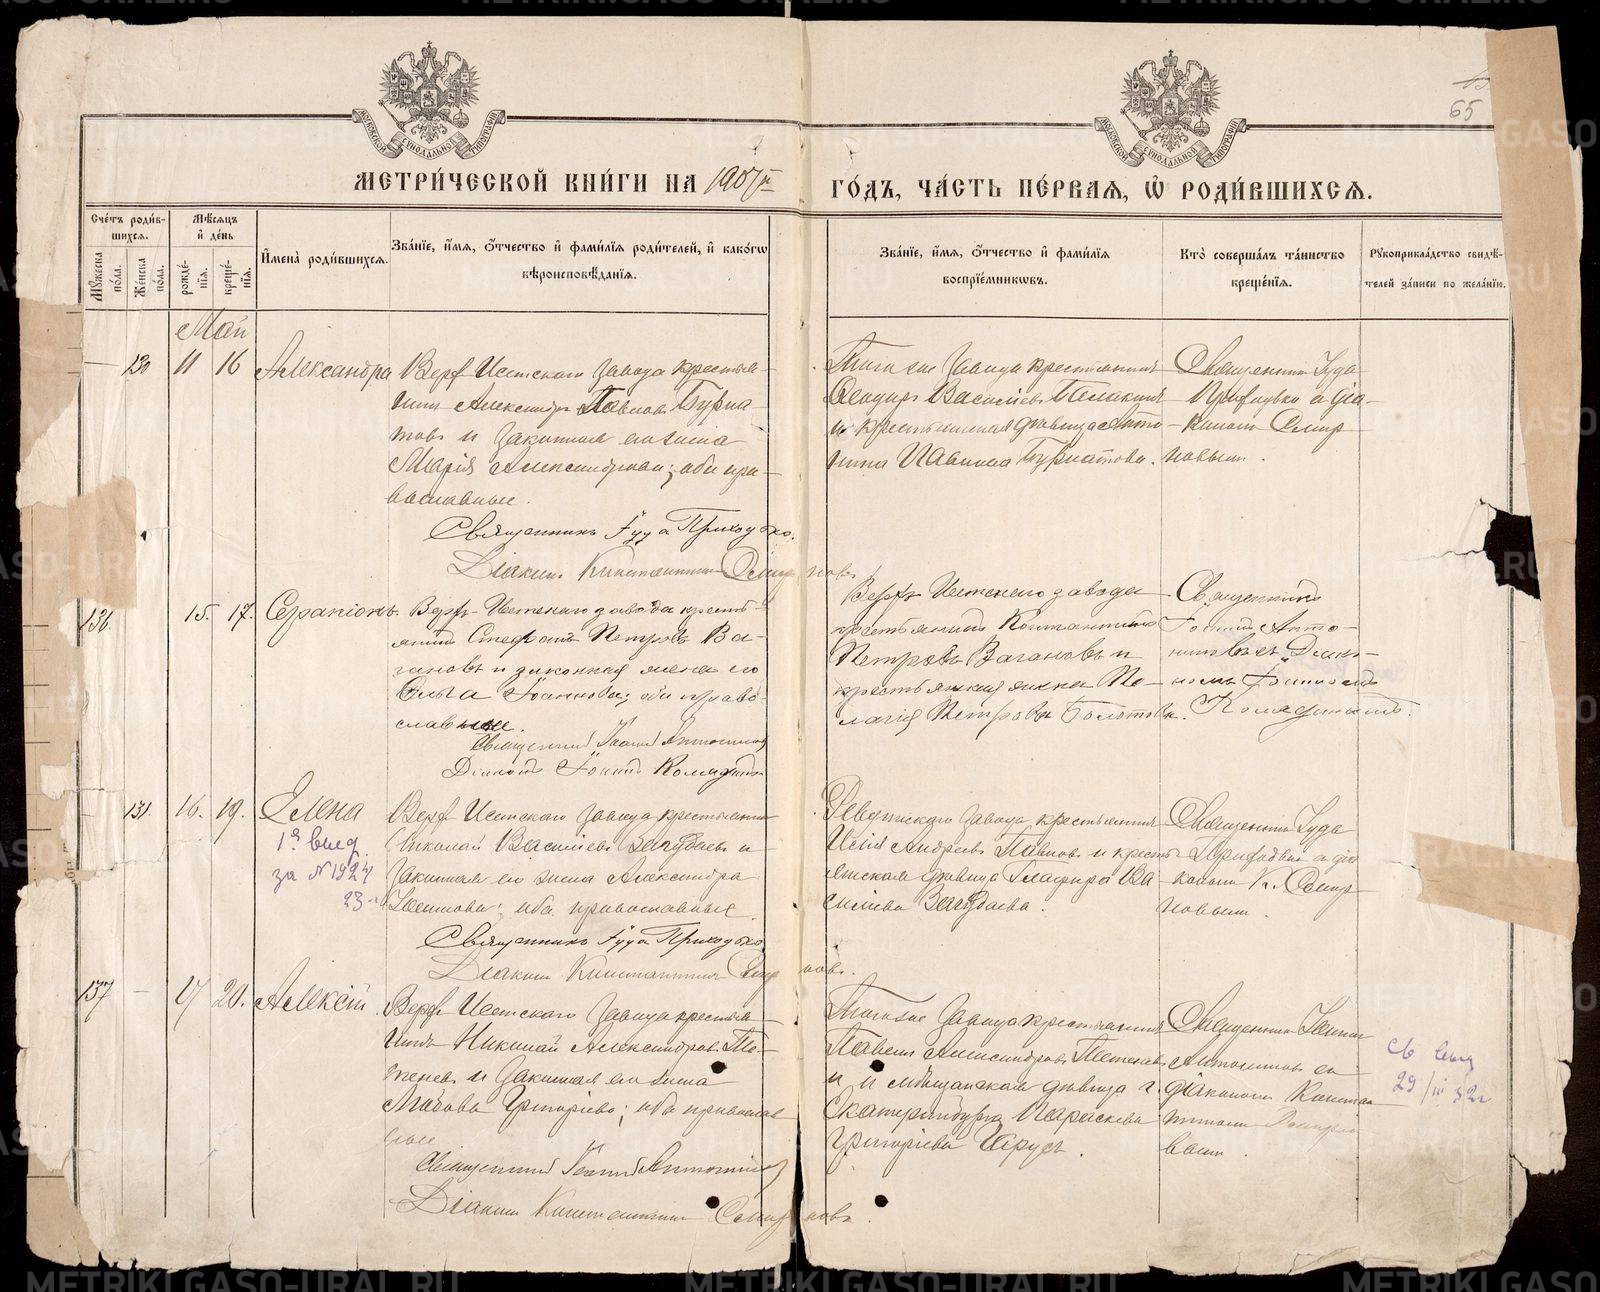 65
МЕТРИ́ЧЕСКОЙ КНИ́ГИ НА 1907й ГО́ДЪ, ЧА́СТЬ ПЕ́РВАЯ, Ѡ҆ РОДИ́ВШИХСѦ.
Сче́тъ роди́в-
шихсѧ.
Мꙋ́жеска по́ла.
Же́нска по́ла.
Мѣ́сѧцъ
и҆ де́нь
рожде́-
нїѧ.
креще́-
нїѧ.
И҆мена̀ роди́вшихсѧ.
Зва́нїе, и҆́мѧ, ѻ҆́тчество и҆ фами́лїѧ роди́телей, и҆ како́гѡ
вѣроисповѣ́данїѧ.
Зва́нїе, и҆́мѧ, ѻ҆́тчество и҆ фами́лїѧ
воспрїе́мникѡвъ.
Кто̀ соверша́лъ та́инство
креще́нїѧ.
Рꙋкоприкла́дство свидѣ́-
телей за́писи по жела́нїю.
Май
130 11 16 Александра
Верх Исетскаго завода крестья-
нинъ Александръ Павловъ Бурма-
товъ и законная его жена
Марія Александрова; оба пра-
вославные.
Священникъ Іуда Приходько.
Діаконъ Константинъ Смирновъ.
Того же завода крестьянинъ
Ѳеодоръ Васильевъ
и крестьянская дѣвица Анто-
нина Павлова Бурматова.
Священникъ Іуда
Приходько съ діа-
кономъ Смир-
новымъ.
136. 15. 17. Серапіонъ.
Верхъ-Исетскаго завода кресть-
янинъ Стефанъ Петровъ Ва-
гановъ и законная жена его
Ольга Іоаннова; оба право-
славные.
Священникъ Іоаннъ Антониновъ
Діаконъ Іоаннъ
Верхъ-Исетскаго завода
крестьянинъ Константинъ
Петровъ Вагановъ и
крестьянская жена Пе-
лагія Петрова Болотова.
Священникъ
Іоаннъ Анто-
ниновъ съ Діако-
номъ Іоанномъ
131 16. 19. Елена
1е выд.
за № 1924
23
Верх Исетскаго завода крестьянинъ
Николай Васильевъ Загудаевъ и
законная его жена Александра
оба православные.
Священникъ Іуда Приходько
Діаконъ Константинъ Смирновъ.
Ревдинскаго завода крестьянинъ
Андреевъ Павловъ и кресть-
янская дѣвица Глафира Ва-
сильева Загудаева.
Священникъ Іуда
Приходько съ діа-
кономъ К. Смир-
новымъ.
137 — 17 20. Алексій.
Верх Исетскаго завода крестья-
нинъ Николай Александровъ Те-
теневъ и законная его жена
Любовь Григорьева; оба православ-
ные
Священникъ Іоаннъ Антониновъ
Діаконъ Константинъ Смирновъ.
Того же завода крестьянинъ
Павелъ Александровъ Тетеневъ
и мѣщанская дѣвица г.
Екатеринбурга Параскева
Григорьева
Священникъ Іоаннъ
Антониновъ съ
діакономъ Констан-
тиномъ
св выд
29/III 32г
METRIKI.GASO-URAL.RU